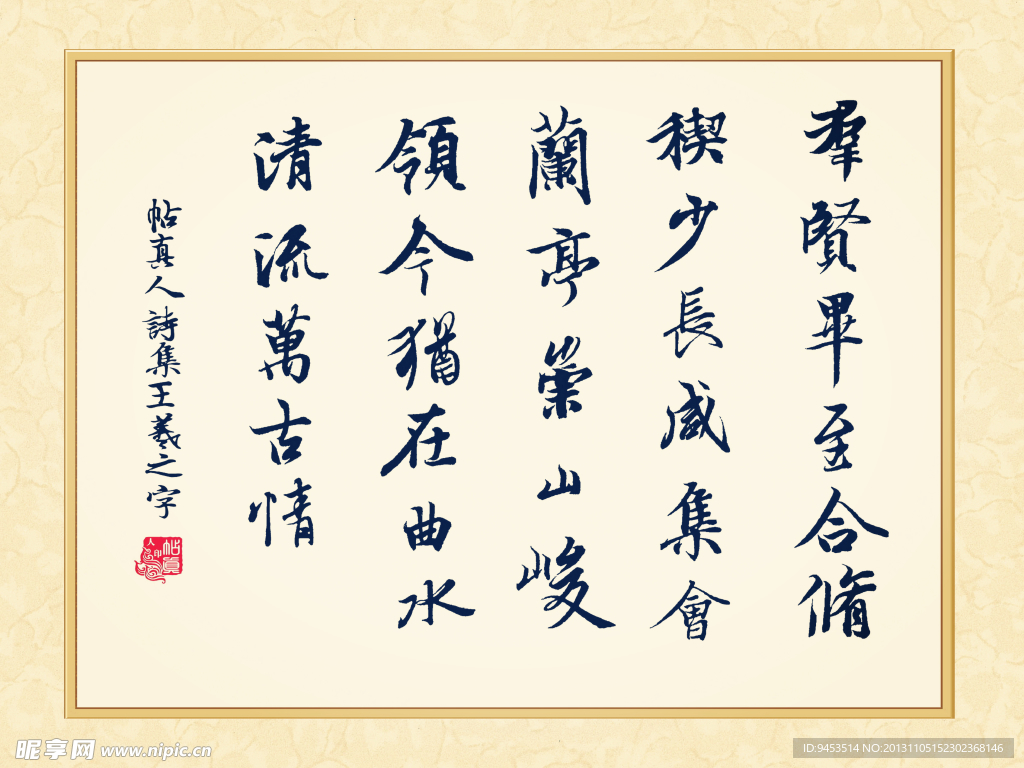 羣賢畢至合脩
稧少長咸集會
蘭亭崇山峻
領今猶在曲水
清流萬古情
帖真人詩集王羲之字
帖真
昵享网 www.nipic.cn
ID:9453514 NO:20131105152302368146